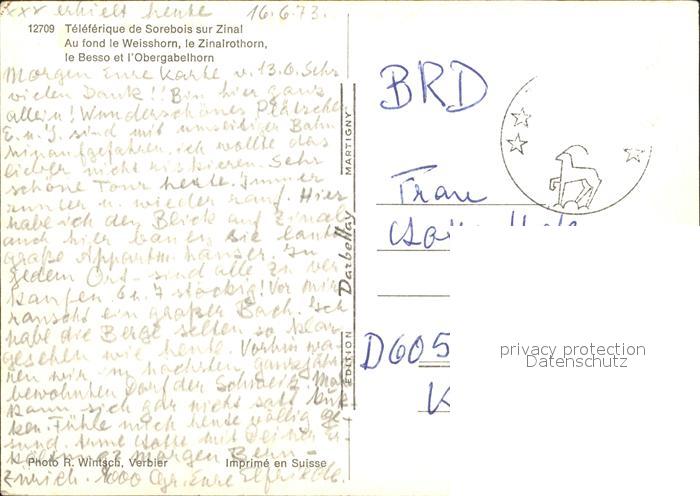 xxx erhielt heute 16.6.73.
12709 Téléférique de Sorebois sur Zinal
Au fond le Weisshorn, le Zinalrothorn,
le Besso et l'Obergabelhorn
Morgen Eure Karte v. 13.6. Sehr
vielen Dank!! Bin hier ganz
allein! Wunderschönes Plätzchen
E. u. J. sind mit umseitiger Bahn
hinaufgefahren, ich wollte das
lieber nicht riskieren. Sehr
schöne Tour heute. Immer
runter u. wieder rauf. Hier
habe ich den Blick auf Zinal
auch hier bauen sie lauter
große Appartm. häuser. In
jedem Ort - sind alle zu ver
kaufen. 6 u. 7 stöckig! Vor mir
rauscht ein großer Bach. Ich
habe die Berge selten so klar
gesehen wie heute. Vorhin wa-
ren wir im höchsten ganzjähr
bewohnten Dorf der Schweiz. Man
kann sich gar nicht satt kuk-
ken. Fühle mich heute völlig ge-
sund. mit
morgen Bern -
Zürich. 1000 Eure
Photo R. Wintsch, Verbier
Imprimé en Suisse
EDITION Darbellay MARTIGNY
BRD
Frau
D605
K
privacy protection
Datenschutz